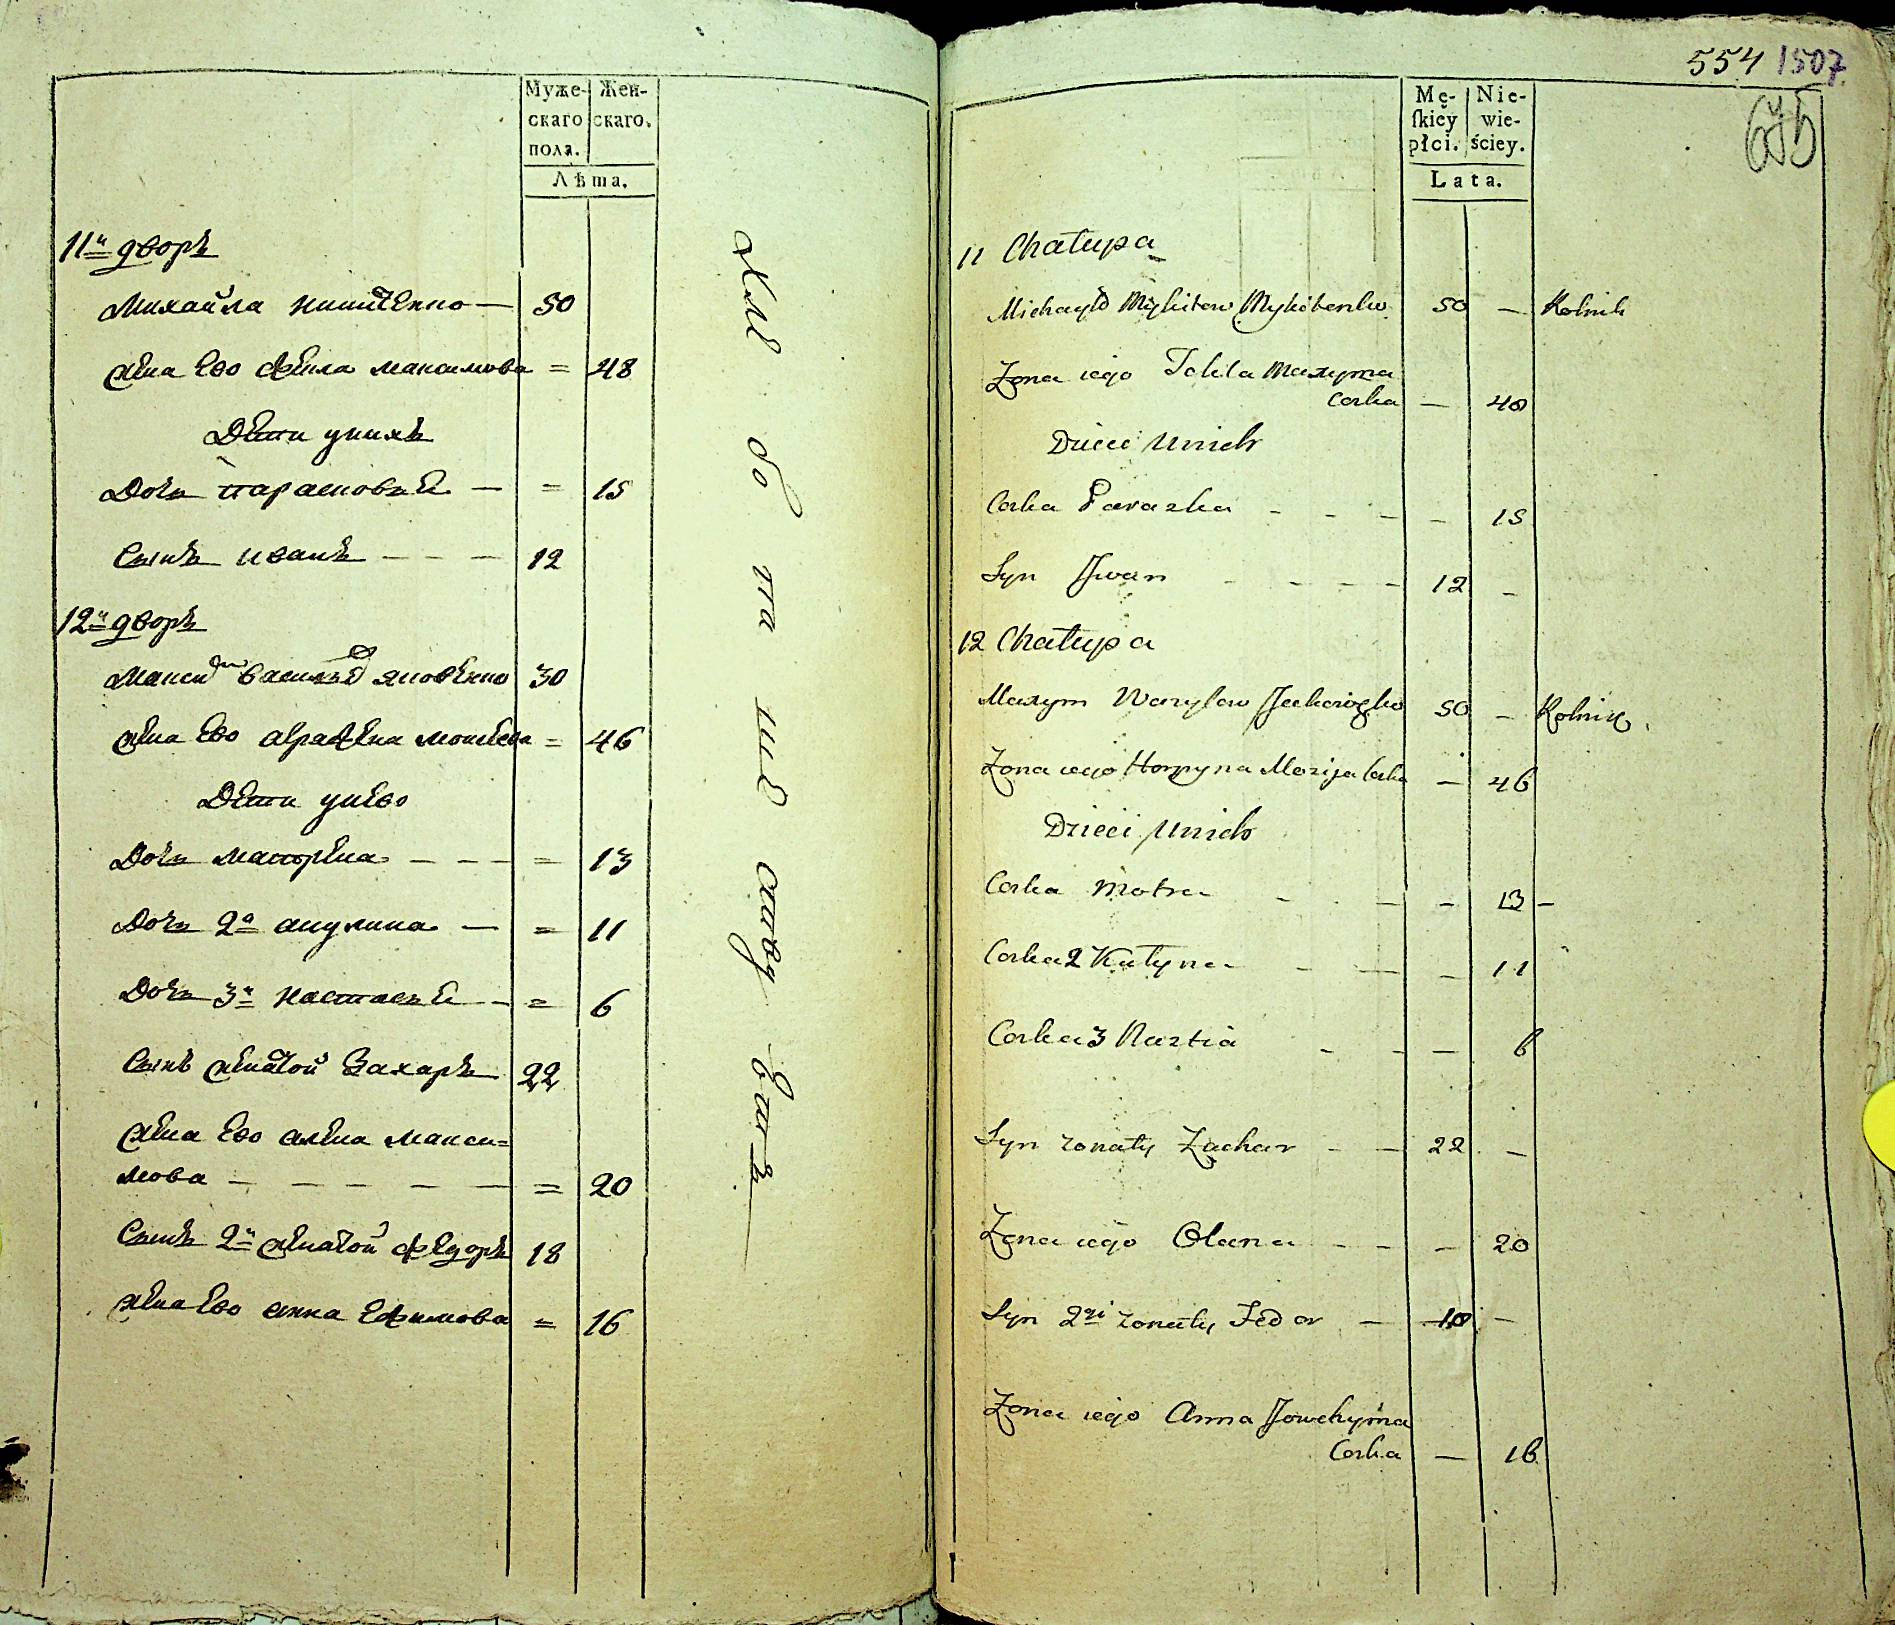 Муже-
скаго
пола.
Жен-
скаго.
Лѣта.
11й дворъ
Михайла Никитенко — 50
жена ево Фекла Максимова = 48
Дети у нихъ
Дочь Парасковья — = 15
Сынъ Иванъ — — — 12
12й дворъ
Максим Васильев Яковенко 30
жена ево Аграфена Моисеева = 46
Дети у нево
Дочь Матрена — — — = 13
Дочь 2а Акулина — = 11
Дочь 3я Настасья — = 6
Сынъ женатой Захаръ 22
жена ево Алена Макси=
мова — — — — — = 20
Сынъ 2й женатой Федоръ 18
жена ево Анна Ефимова = 16
554 1507
675
Mę-
ſkiey
płci.
Nie-
wie-
ściey.
Lata.
11 Chałupa
Michayło Mykitow Mykitenko 50 — Rolnik
Zona iego Fekla Maxyma
Corka — 48
Dzieci Unich
Corka Paraska - - - - 15
Syn Jwan - - - - 12 -
12 Chałupa
Maxym Wasylow 50 - Rolnik
Zona iego Horpyna Corka — 46
Dzieci Unich
Corka Motra - - - - 13 -
Corka 2 - - - 11
Corka 3 Nastia - - — 6
Syn zonaty Zachar - - 22 -
Zona iego Olena - - - 20
Syn 2gi zonaty Fedor — 18 -
Zona iego Anna Jowchyma
Corka — 16